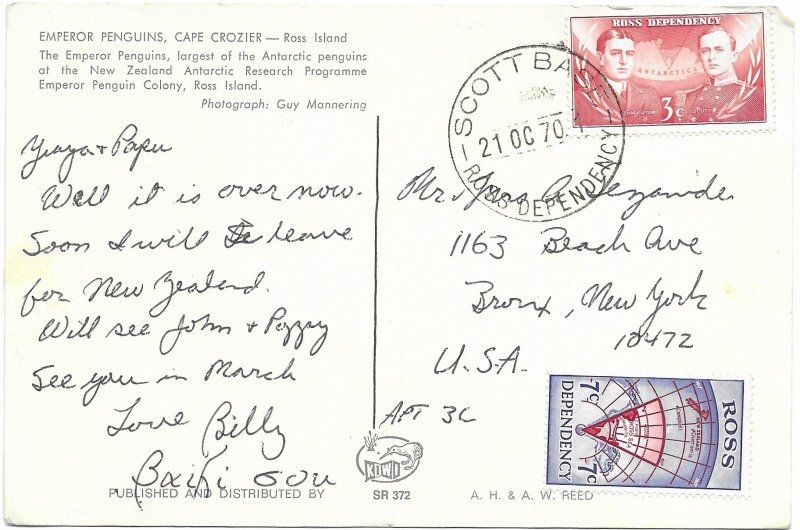 EMPEROR PENGUINS, CAPE CROZIER — Ross Island
The Emperor Penguins, largest of the Antarctic penguins
at the New Zealand Antarctic Research Programme
Emperor Penguin Colony, Ross Island.
Photograph: Guy Mannering
Yiaya + Papu
Well it is over now.
Soon I will leave
for New Zealand.
Will see John + Poppy
See you in March
Love Billy
PUBLISHED AND DISTRIBUTED BY
KIWI
SR 372
A. H. & A. W. REED
SCOTT BASE
21 OC 70
ROSS DEPENDENCY
ROSS DEPENDENCY
ANTARCTICA
SHACKLETON
SCOTT
3c
Mr + Mrs
1163 Beach Ave
Bronx, New York
10472
U.S.A.
APT 3C
ROSS
DEPENDENCY
7c
7c